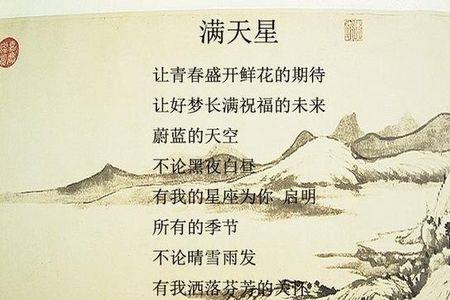 满天星
让青春盛开鲜花的期待
让好梦长满祝福的未来
蔚蓝的天空
不论黑夜白昼
有我的星座为你 启明
所有的季节
不论晴雪雨发
有我洒落芬芳的关怀